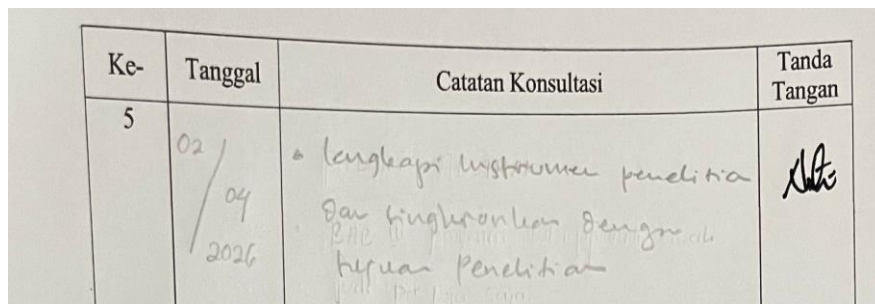 Ke-
Tanggal
Catatan Konsultasi
Tanda
Tangan
5
02/
04
2026
lengkapi instrumen penelitian
dan singkronkan dengan
tujuan Penelitian